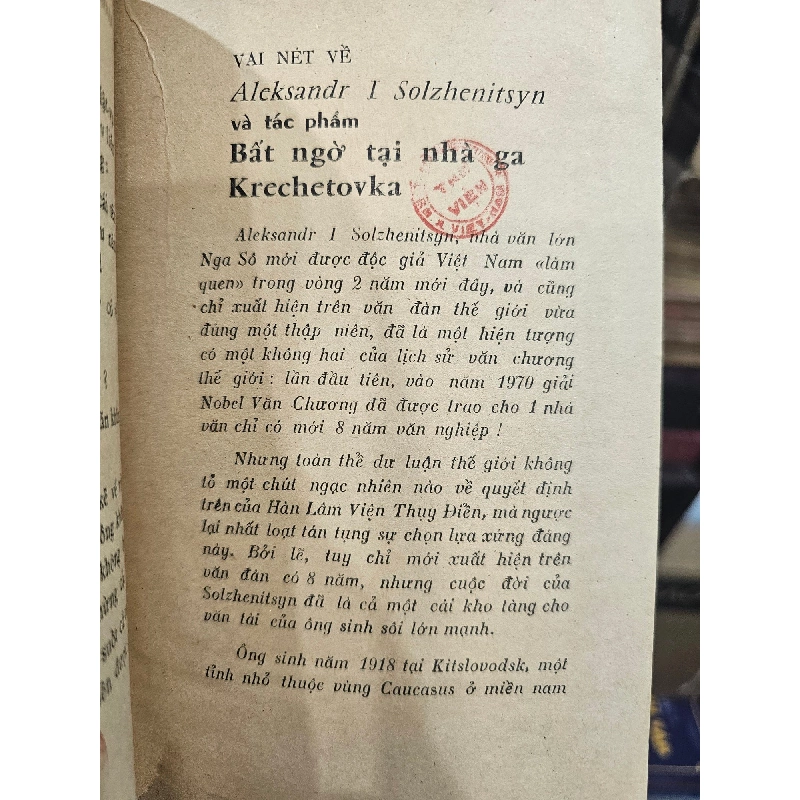 VÀI NÉT VỀ
Aleksandr I Solzhenitsyn
và tác phẩm
Bất ngờ tại nhà ga
Krechetovka
Aleksandr I Solzhenitsyn, nhà văn lớn
Nga Sô mới được độc giả Việt Nam «làm
quen» trong vòng 2 năm mới đây, và cũng
chỉ xuất hiện trên văn đàn thế giới vừa
đúng một thập niên, đã là một hiện tượng
có một không hai của lịch sử văn chương
thế giới : lần đầu tiên, vào năm 1970 giải
Nobel Văn Chương đã được trao cho 1 nhà
văn chỉ có mới 8 năm văn nghiệp !
Nhưng toàn thể dư luận thế giới không
tỏ một chút ngạc nhiên nào về quyết định
trên của Hàn Lâm Viện Thụy Điển, mà ngược
lại nhất loạt tán tụng sự chọn lựa xứng đáng
này. Bởi lẽ, tuy chỉ mới xuất hiện trên
văn đàn có 8 năm, nhưng cuộc đời của
Solzhenitsyn đã là cả một cái kho tàng cho
văn tài của ông sinh sôi lớn mạnh.
Ông sinh năm 1918 tại Kitslovodsk, một
tỉnh nhỏ thuộc vùng Caucasus ở miền nam